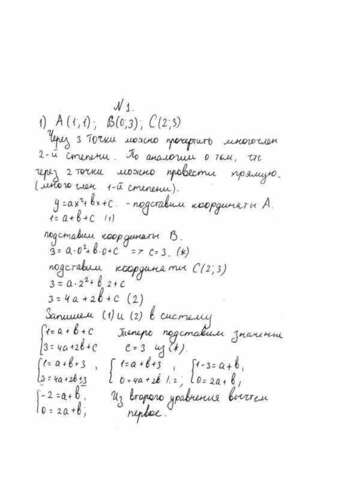 N 1.
1) A(1;1); B(0;3); C(2;3)
Через 3 точки можно прочертить многочлен
2-й степени. По аналогии о том, что
через 2 точки можно провести прямую.
(многочлен 1-й степени).
y=ax²+bx+c. - подставим координаты A.
1=a+b+c (1)
подставим координаты B.
3=a·0²+b·0+c => c=3. (*)
подставим координаты C(2;3)
3=a·2²+b·2+c
3=4a+2b+c (2)
Запишем (1) и (2) в систему
{1=a+b+c Теперь подставим значение
{3=4a+2b+c c=3 из (*).
{1=a+b+3 , {1=a+b+3 , {1-3=a+b,
{3=4a+2b+3 {0=4a+2b |:2; {0=2a+b;
{-2=a+b, Из второго уравнения вычтем
{0=2a+b; первое.